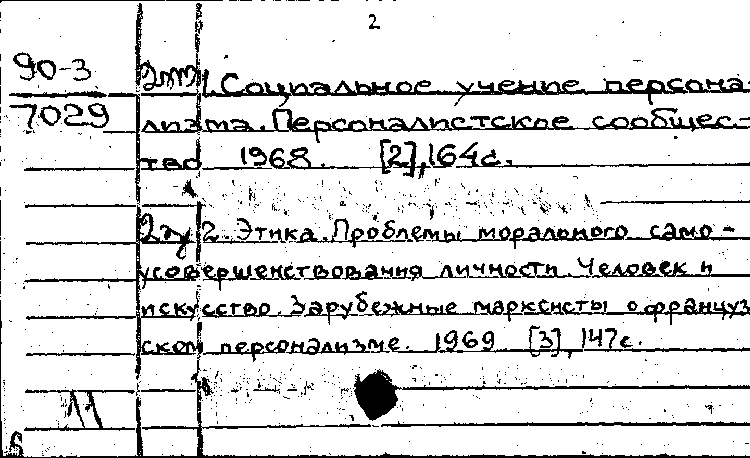 2
90-3
7029
1. Социальное учение персона-
лизма. Персоналистское сообщес-
тво 1968. [2], 164с.
2. Этика. Проблемы морального само-
усовершенствования личности. Человек и
искусство. Зарубежные марксисты о француз
ском персонализме. 1969 [3], 147с.
11